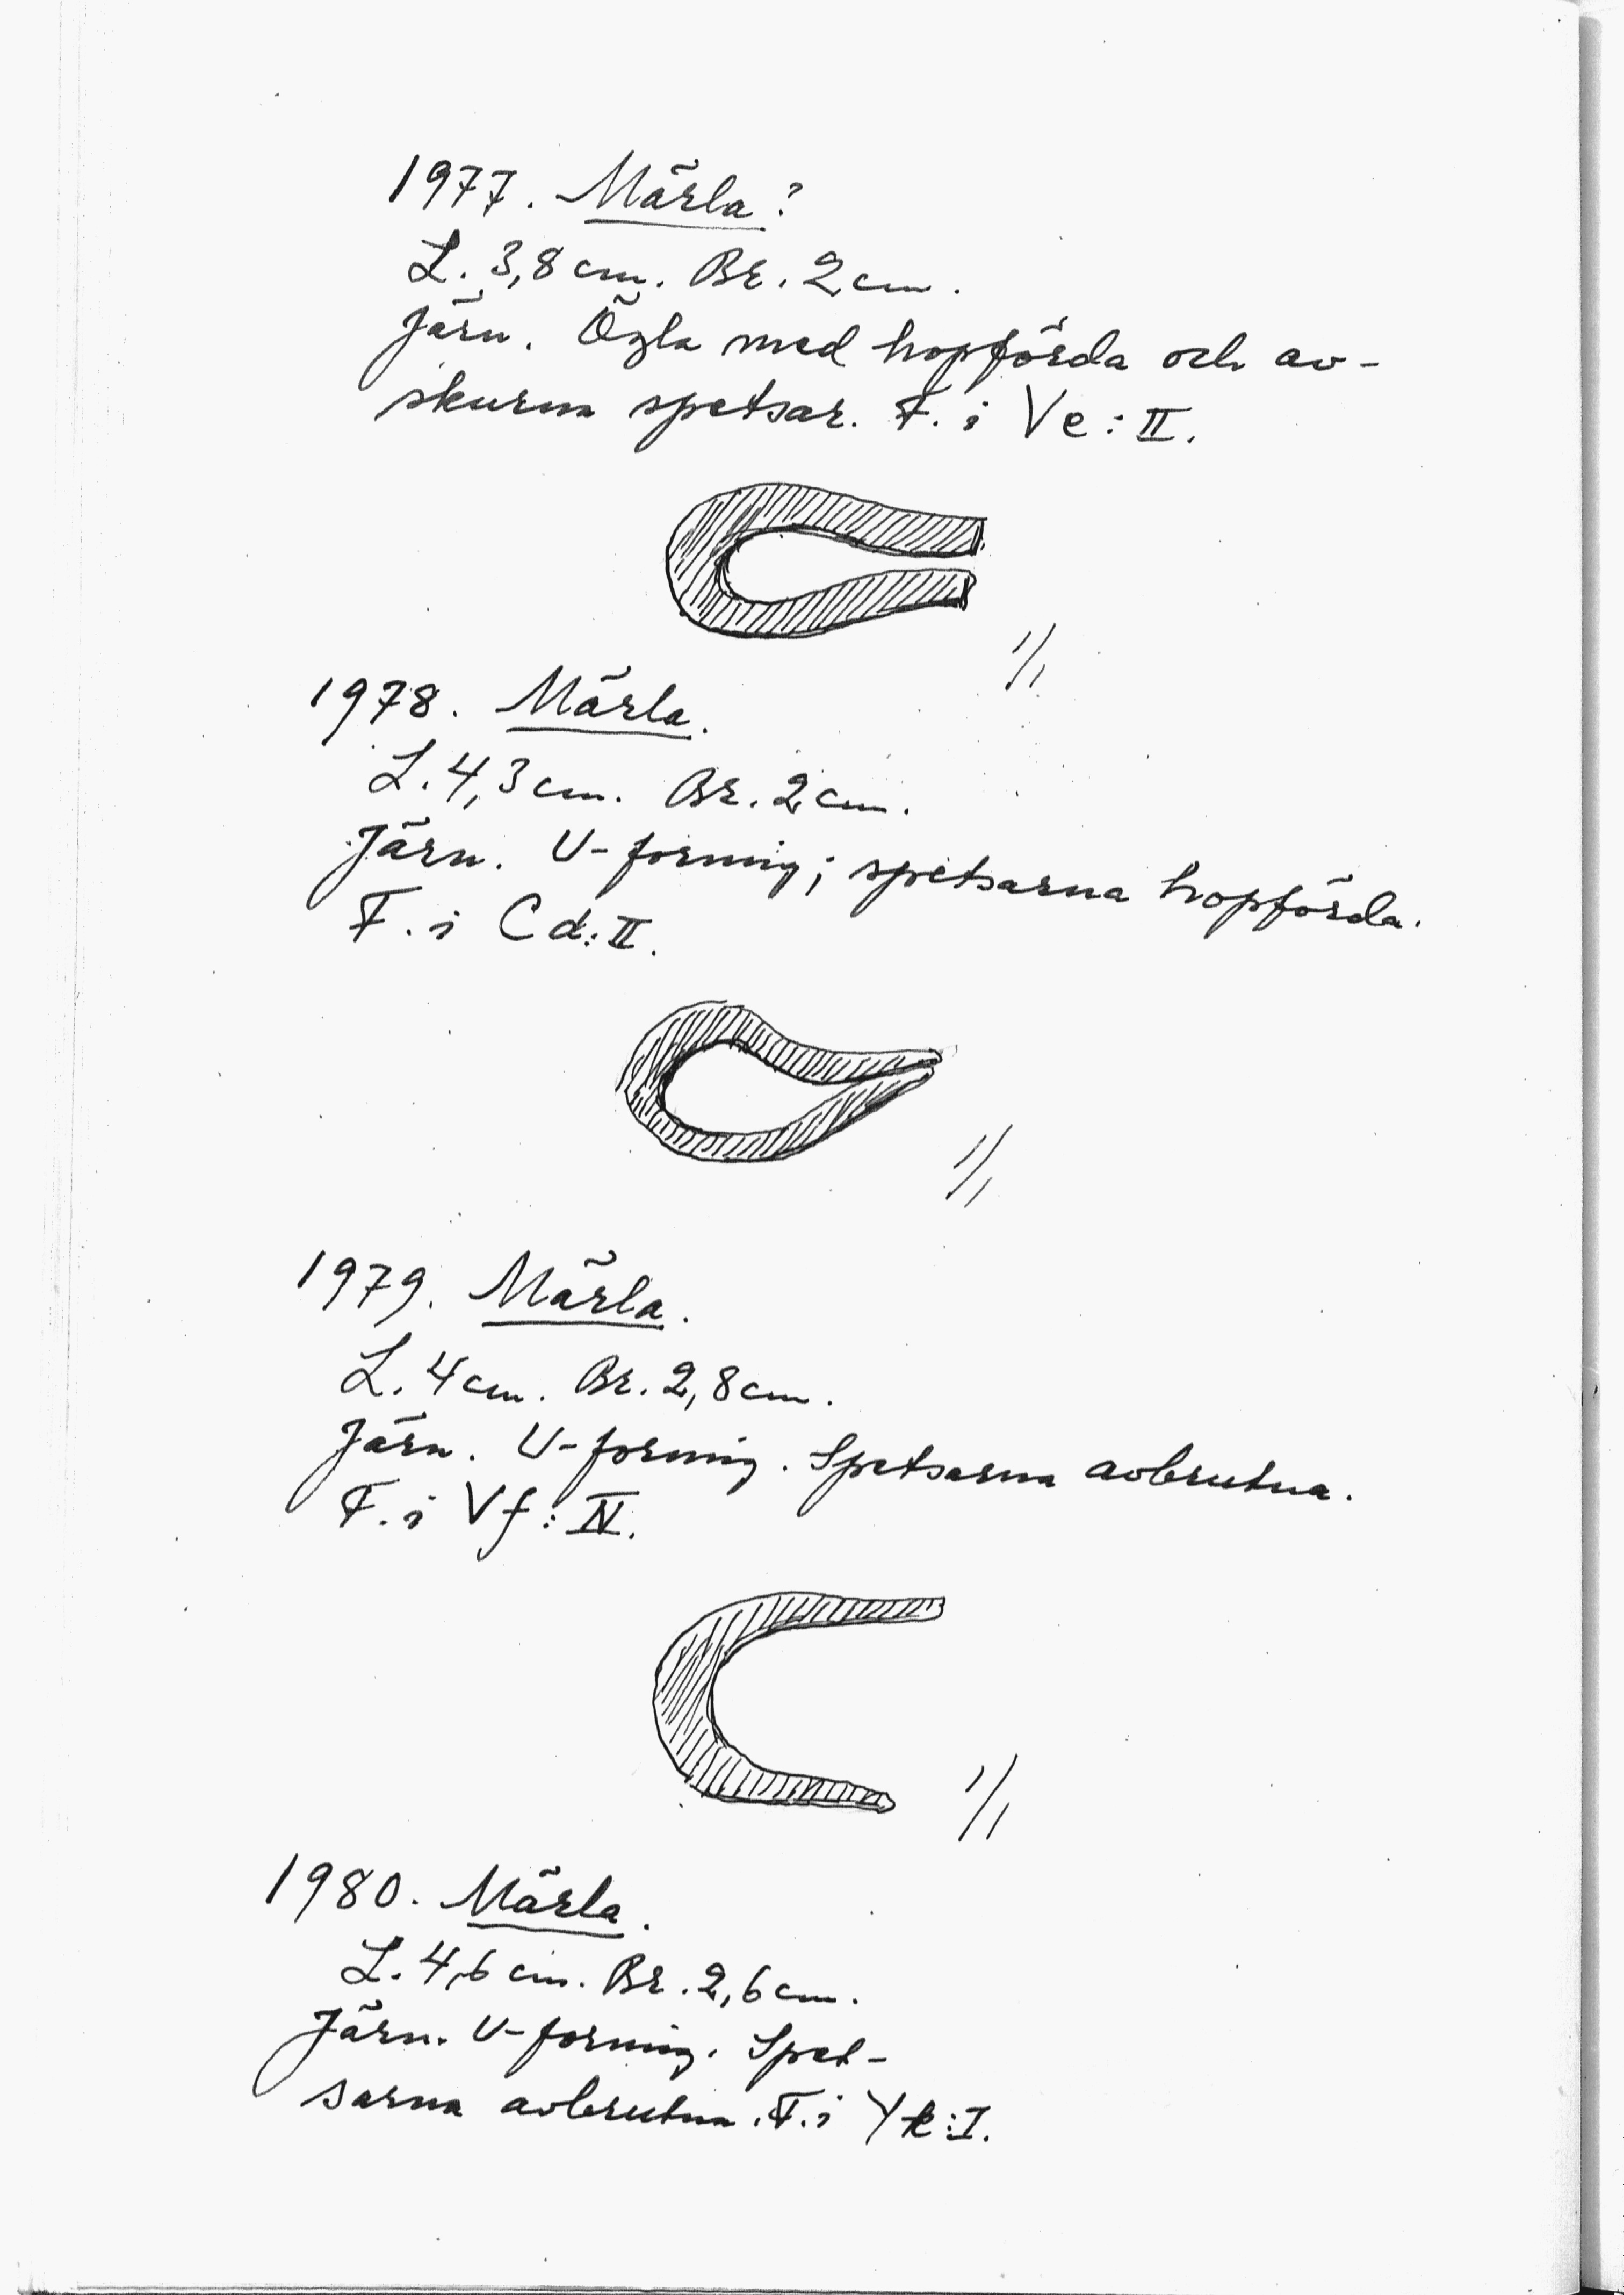 1977. Märla?
L. 3,8 cm. Br. 2 cm.
Järn. Ögla med hopförda och av-
skurna spetsar. F. i Ve: II.
1/1
1978. Märla.
L. 4,3 cm. Br. 2 cm.
Järn. U-formig; spetsarna hopförda.
F. i Cd: II.
1/1
1979. Märla.
L. 4 cm. Br. 2,8 cm.
Järn. U-formig. Spetsarna avbrutna.
F. i Vf: IV.
1/1
1980. Märla.
L. 4,6 cm. Br. 2,6 cm.
Järn. U-formig. Spet-
sarna avbrutna. F. i Yk: I.